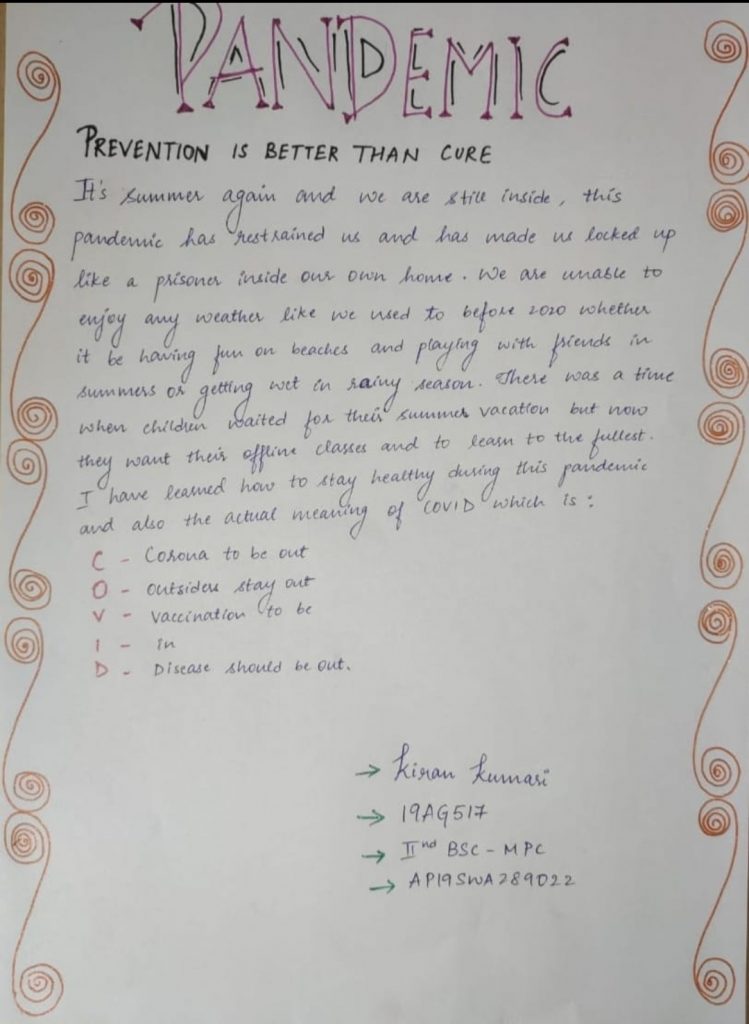 PANDEMIC
PREVENTION IS BETTER THAN CURE
It's summer again and we are still inside, this
pandemic has restrained us and has made us locked up
like a prisoner inside our own home. We are unable to
enjoy any weather like we used to before 2020 whether
it be having fun on beaches and playing with friends in
summers or getting wet in rainy season. There was a time
when children waited for their summer vacation but now
they want their offline classes and to learn to the fullest.
I have learned how to stay healthy during this pandemic
and also the actual meaning of COVID which is :
C - Corona to be out
O - outsiders stay out
V - vaccination to be
I - in
D - Disease should be out.
→ Kiran Kumari
→ 19AG517
→ IInd BSC - MPC
→ AP19SWA289022